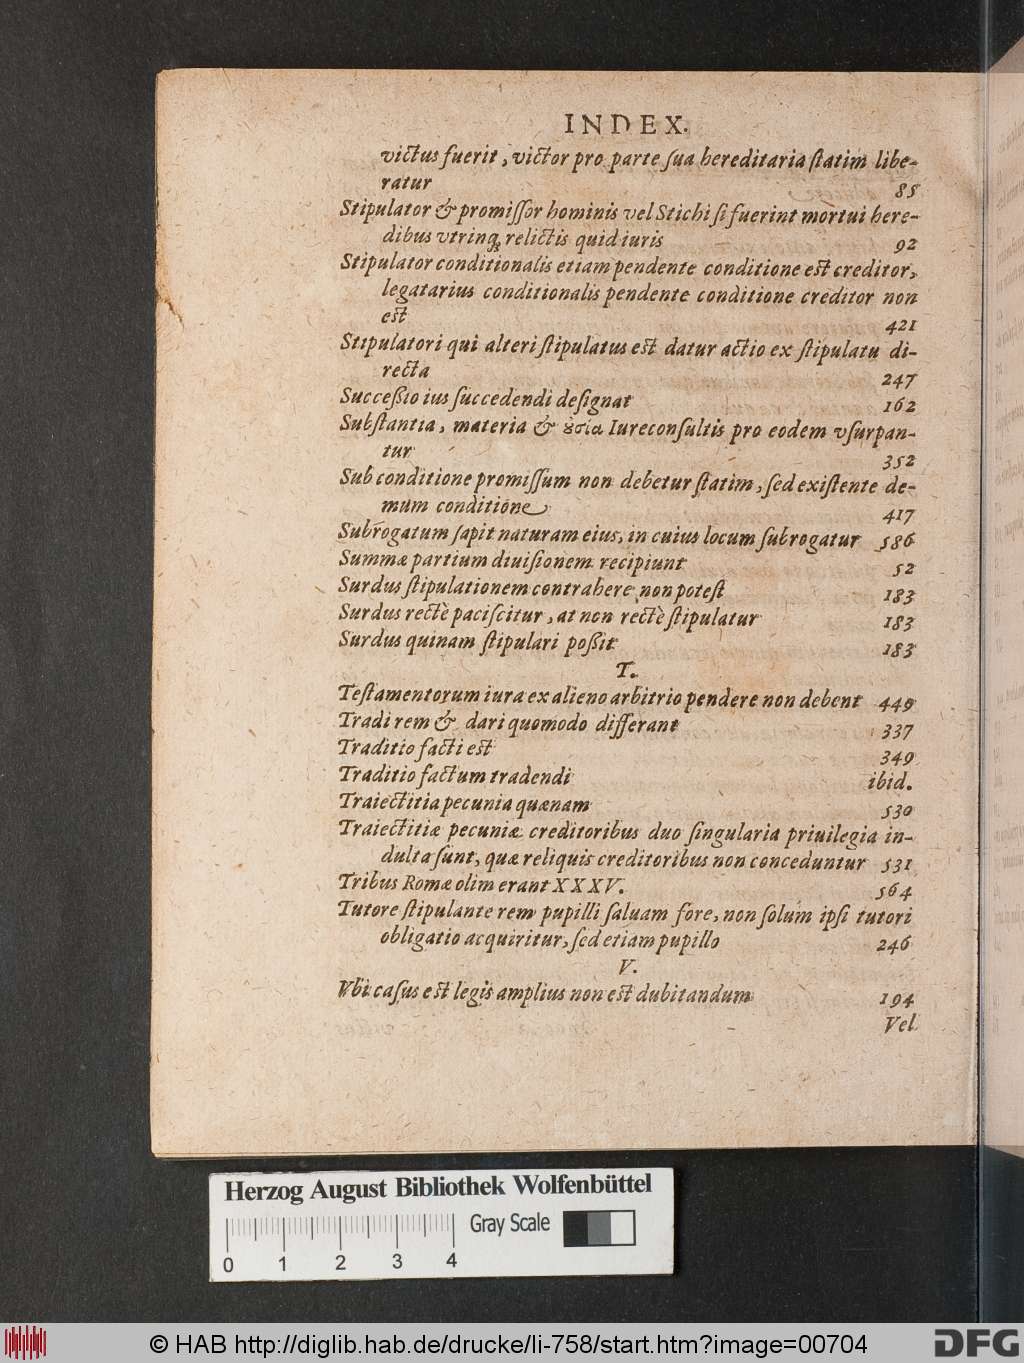 INDEX.
victus fuerit, victor pro parte sua hereditaria statim libe-
ratur 85
Stipulator & promissor hominis vel Stichi si fuerint mortui here-
dibus vtrinq; relictis quid iuris 92
Stipulator conditionalis etiam pendente conditione est creditor,
legatarius conditionalis pendente conditione creditor non
est 421
Stipulatori qui alteri stipulatus est datur actio ex stipulatu di-
recta 247
Successio ius succedendi designat 162
Substantia, materia & ȣσία Iureconsultis pro eodem vsurpan-
tur 352
Sub conditione promissum non debetur statim, sed existente de-
mum conditione 417
Subrogatum sapit naturam eius, in cuius locum subrogatur 586
Summæ partium diuisionem recipiunt 52
Surdus stipulationem contrahere non potest 183
Surdus rectè paciscitur, at non rectè stipulatur 183
Surdus quinam stipulari possit 183
T.
Testamentorum iura ex alieno arbitrio pendere non debent 449
Tradi rem & dari quomodo differant 337
Traditio facti est 349
Traditio factum tradendi ibid.
Traiectitia pecunia quænam 530
Traiectitiæ pecuniæ creditoribus duo singularia priuilegia in-
dulta sunt, quæ reliquis creditoribus non conceduntur 531
Tribus Romæ olim erant XXXV. 564
Tutore stipulante rem pupilli saluam fore, non solùm ipsi tutori
obligatio acquiritur, sed etiam pupillo 246
V.
Vbi casus est legis amplius non est dubitandum 194
Vel
Herzog August Bibliothek Wolfenbüttel
Gray Scale
0 1 2 3 4
© HAB http://diglib.hab.de/drucke/li-758/start.htm?image=00704
DFG